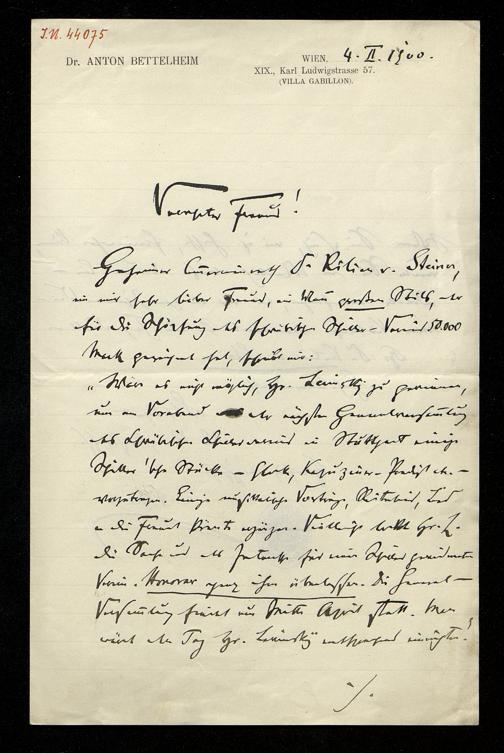 J.N. 44075
Dr. ANTON BETTELHEIM
WIEN, 4. II. 1900.
XIX., Karl Ludwigstrasse 57.
(VILLA GABILLON).
Verehrter Freund!
Geheimer Commerzienrath Dr Kilian v. Steiner,
ein mir sehr lieber Freund, ein Mann großen Stils, der
für die Schöpfung des schwäbischen Schiller-Vereins 50.000
Mark gezeichnet hat, schreibt mir:
„Wäre es nicht möglich, Hr. Lewinsky zu gewinnen,
um am Vorabend der nächsten Generalversammlung
des schwäbischen Schillerverein in Stuttgart einige
Schiller'sche Stücke – Glocke, Kapuziner-Predigt etc. –
vorzutragen. Einige musikalische Vorträge, Reiterlied, Lied
an die Freude könnte ergänzen. Vielleicht lockt Hr. L.
die Sache und das Interesse für unsern Schiller gewidmeten
Verein. Honorar ganz ihm überlassen. Die General-
Versammlung findet um Mitte April statt. Man
würde den Tag Hr. Lewinsky entsprechend einrichten."
./.